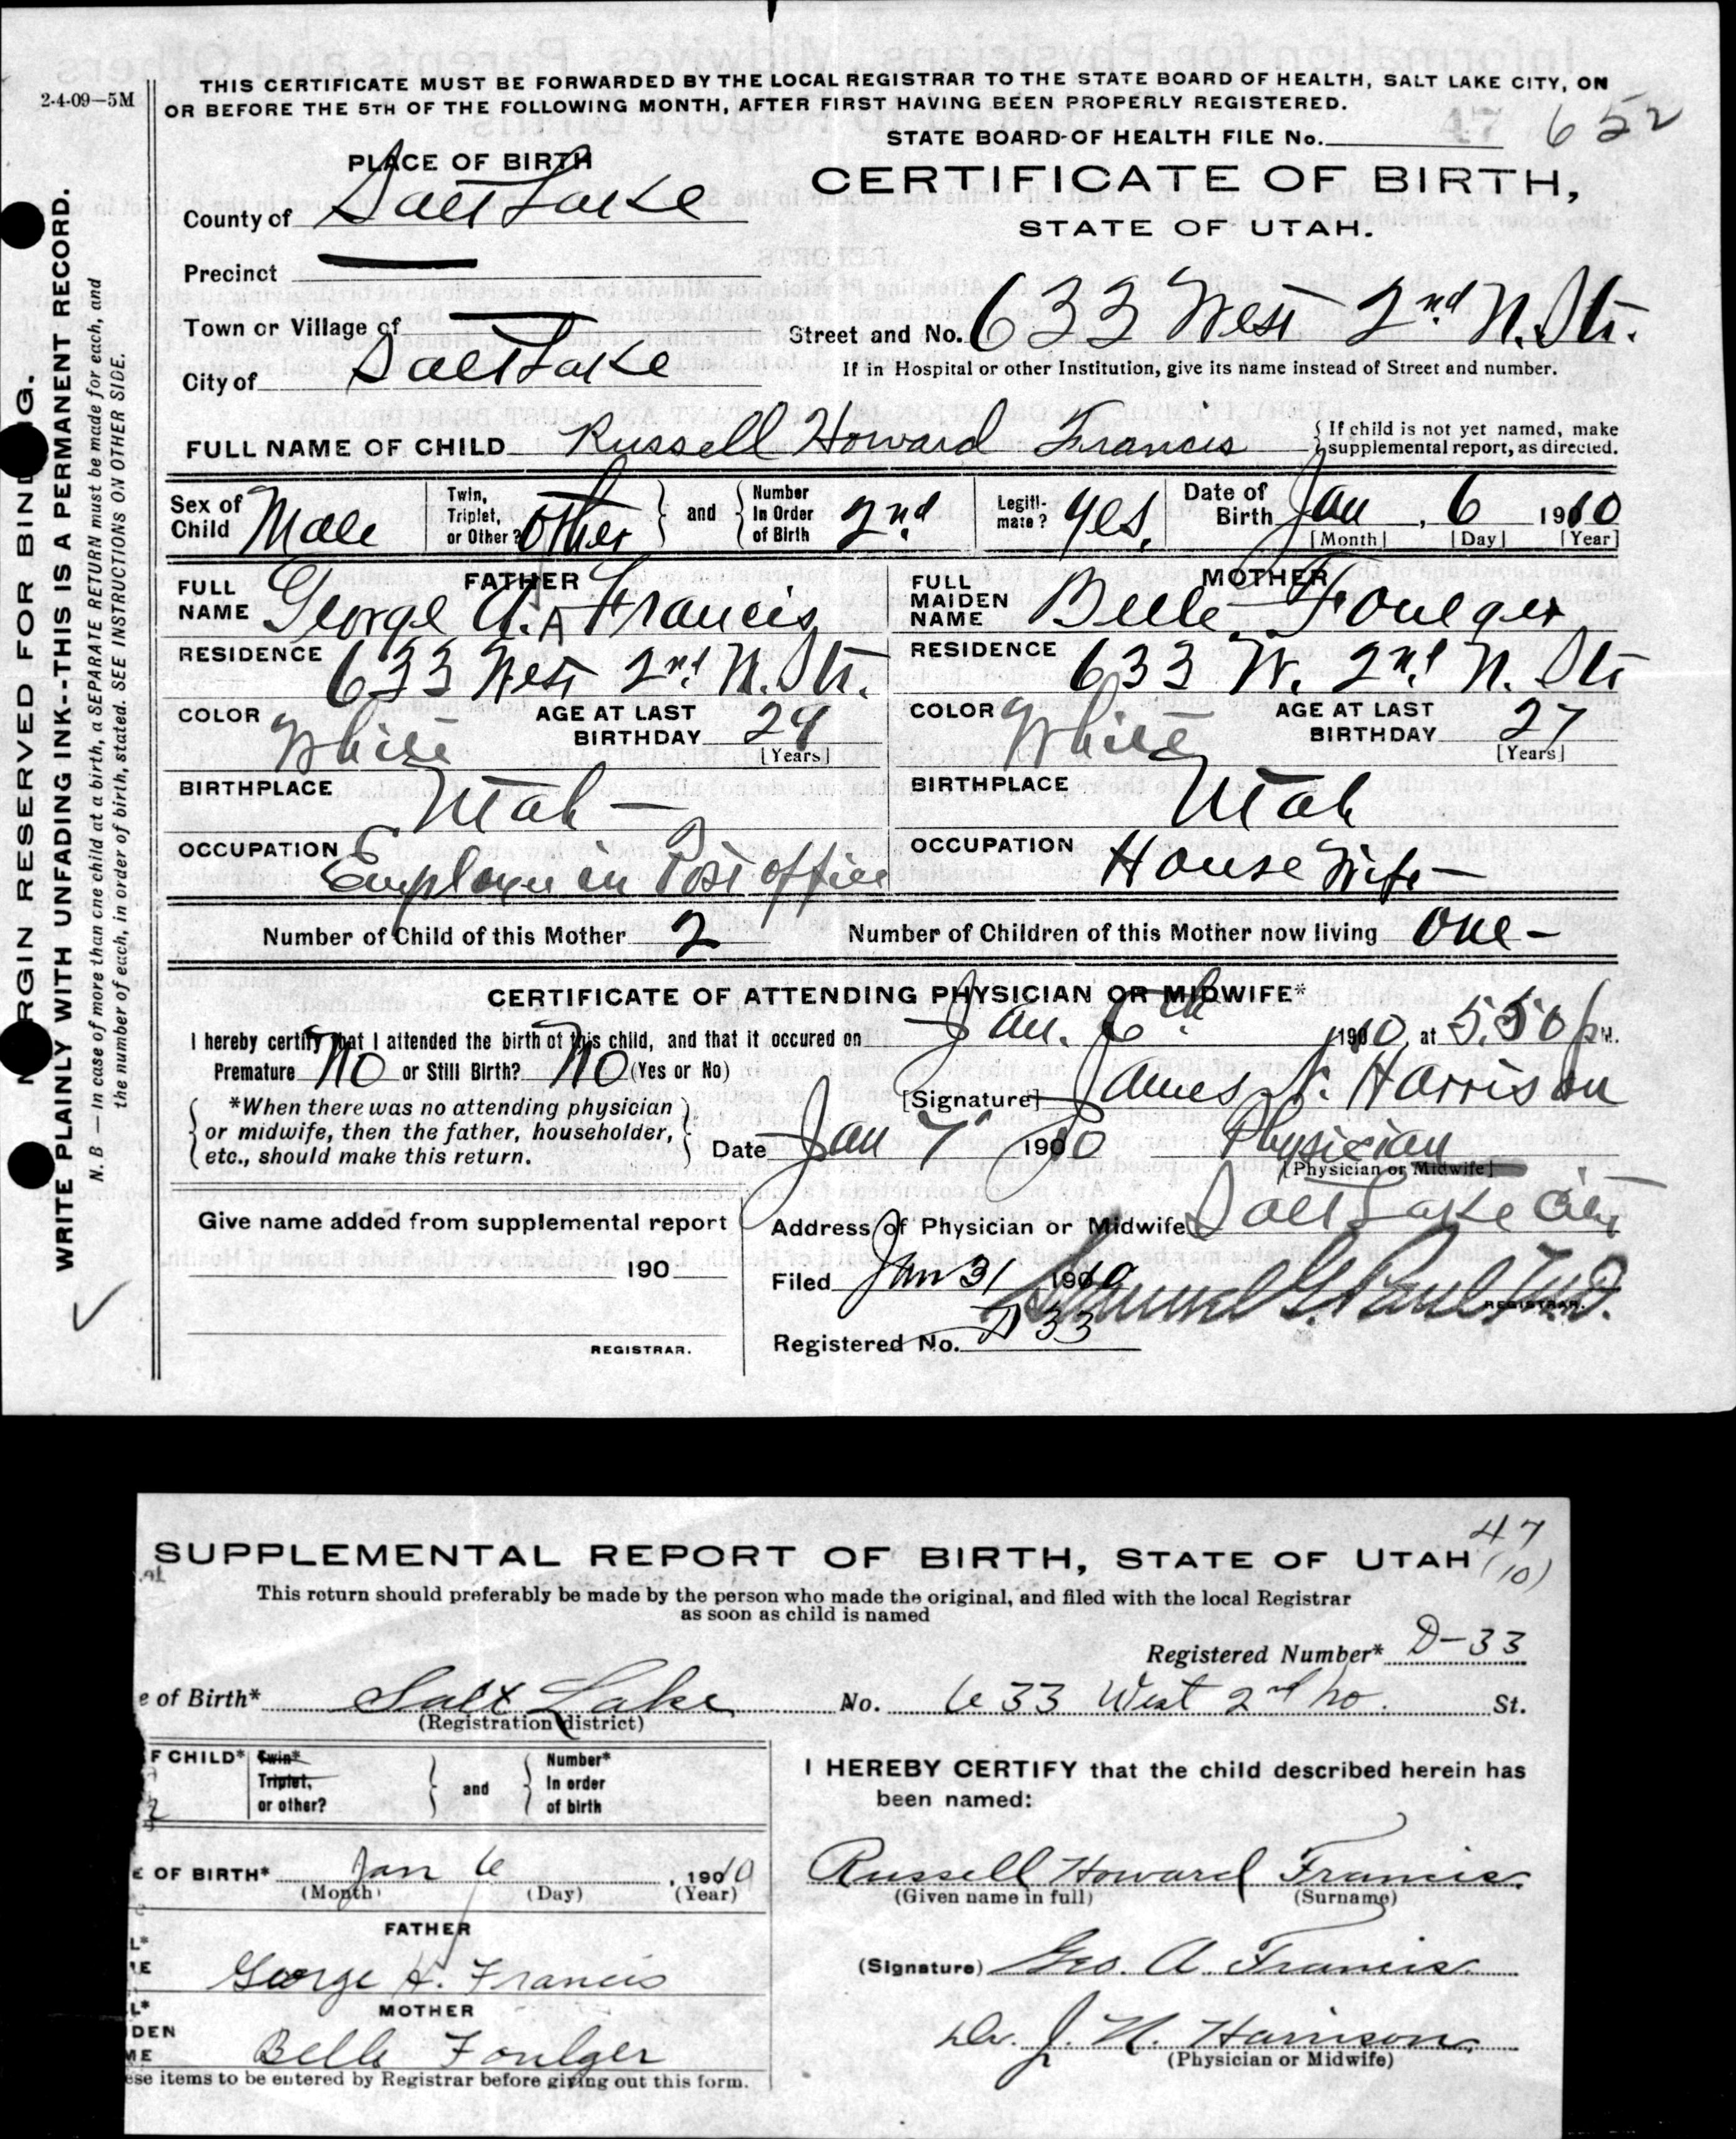 2-4-09—5M
THIS CERTIFICATE MUST BE FORWARDED BY THE LOCAL REGISTRAR TO THE STATE BOARD OF HEALTH, SALT LAKE CITY, ON
OR BEFORE THE 5TH OF THE FOLLOWING MONTH, AFTER FIRST HAVING BEEN PROPERLY REGISTERED.
STATE BOARD OF HEALTH FILE No. 47 652
PLACE OF BIRTH
CERTIFICATE OF BIRTH,
STATE OF UTAH.
County of Salt Lake
Precinct
Town or Village of
Street and No. 633 West 2nd N. Str.
City of Salt Lake
If in Hospital or other Institution, give its name instead of Street and number.
FULL NAME OF CHILD Russell Howard Francis
{ If child is not yet named, make
supplemental report, as directed.
Sex of Child Male
Twin, Triplet, or Other? Other } and { Number In Order of Birth 2nd
Legitimate? Yes.
Date of Birth Jan, 6 1910
[Month] [Day] [Year]
FATHER
FULL NAME George A. A Francis
RESIDENCE 633 West 2nd N. Str.
COLOR White AGE AT LAST BIRTHDAY 29
[Years]
BIRTHPLACE Utah —
OCCUPATION Employee in Post office
MOTHER
FULL MAIDEN NAME Belle Foulger
RESIDENCE 633 W. 2nd N. Str
COLOR White AGE AT LAST BIRTHDAY 27
[Years]
BIRTHPLACE Utah
OCCUPATION House Wife —
Number of Child of this Mother 2 Number of Children of this Mother now living One —
CERTIFICATE OF ATTENDING PHYSICIAN OR MIDWIFE*
I hereby certify that I attended the birth of this child, and that it occured on Jan. 6th 1910, at 5.50 p M.
Premature No or Still Birth? No (Yes or No)
[Signature] James N. Harrison
{ *When there was no attending physician
or midwife, then the father, householder,
etc., should make this return. }
Date Jan 7 1910 Physician
[Physician or Midwife]
Give name added from supplemental report
190
REGISTRAR.
Address of Physician or Midwife Salt Lake City
Filed Jan 31 1910 Samuel G. Paul, M.D.
REGISTRAR.
Registered No. D 33
MARGIN RESERVED FOR BINDING.
WRITE PLAINLY WITH UNFADING INK--THIS IS A PERMANENT RECORD.
N. B — In case of more than one child at a birth, a SEPARATE RETURN must be made for each, and
the number of each, in order of birth, stated. SEE INSTRUCTIONS ON OTHER SIDE.
47
(10)
SUPPLEMENTAL REPORT OF BIRTH, STATE OF UTAH
This return should preferably be made by the person who made the original, and filed with the local Registrar
as soon as child is named
Registered Number* D-33
e of Birth* Salt Lake No. 633 West 2nd No. St.
(Registration district)
F CHILD* Twin* Triplet, or other? } and { Number* In order of birth
E OF BIRTH* Jan 6, 1910
(Month) (Day) (Year)
FATHER
L*
E George A. Francis
MOTHER
L*
DEN
ME Belle Foulger
ese items to be entered by Registrar before giving out this form.
I HEREBY CERTIFY that the child described herein has
been named:
Russell Howard Francis
(Given name in full) (Surname)
(Signature) Geo. A. Francis
Dr. J. N. Harrison
(Physician or Midwife)